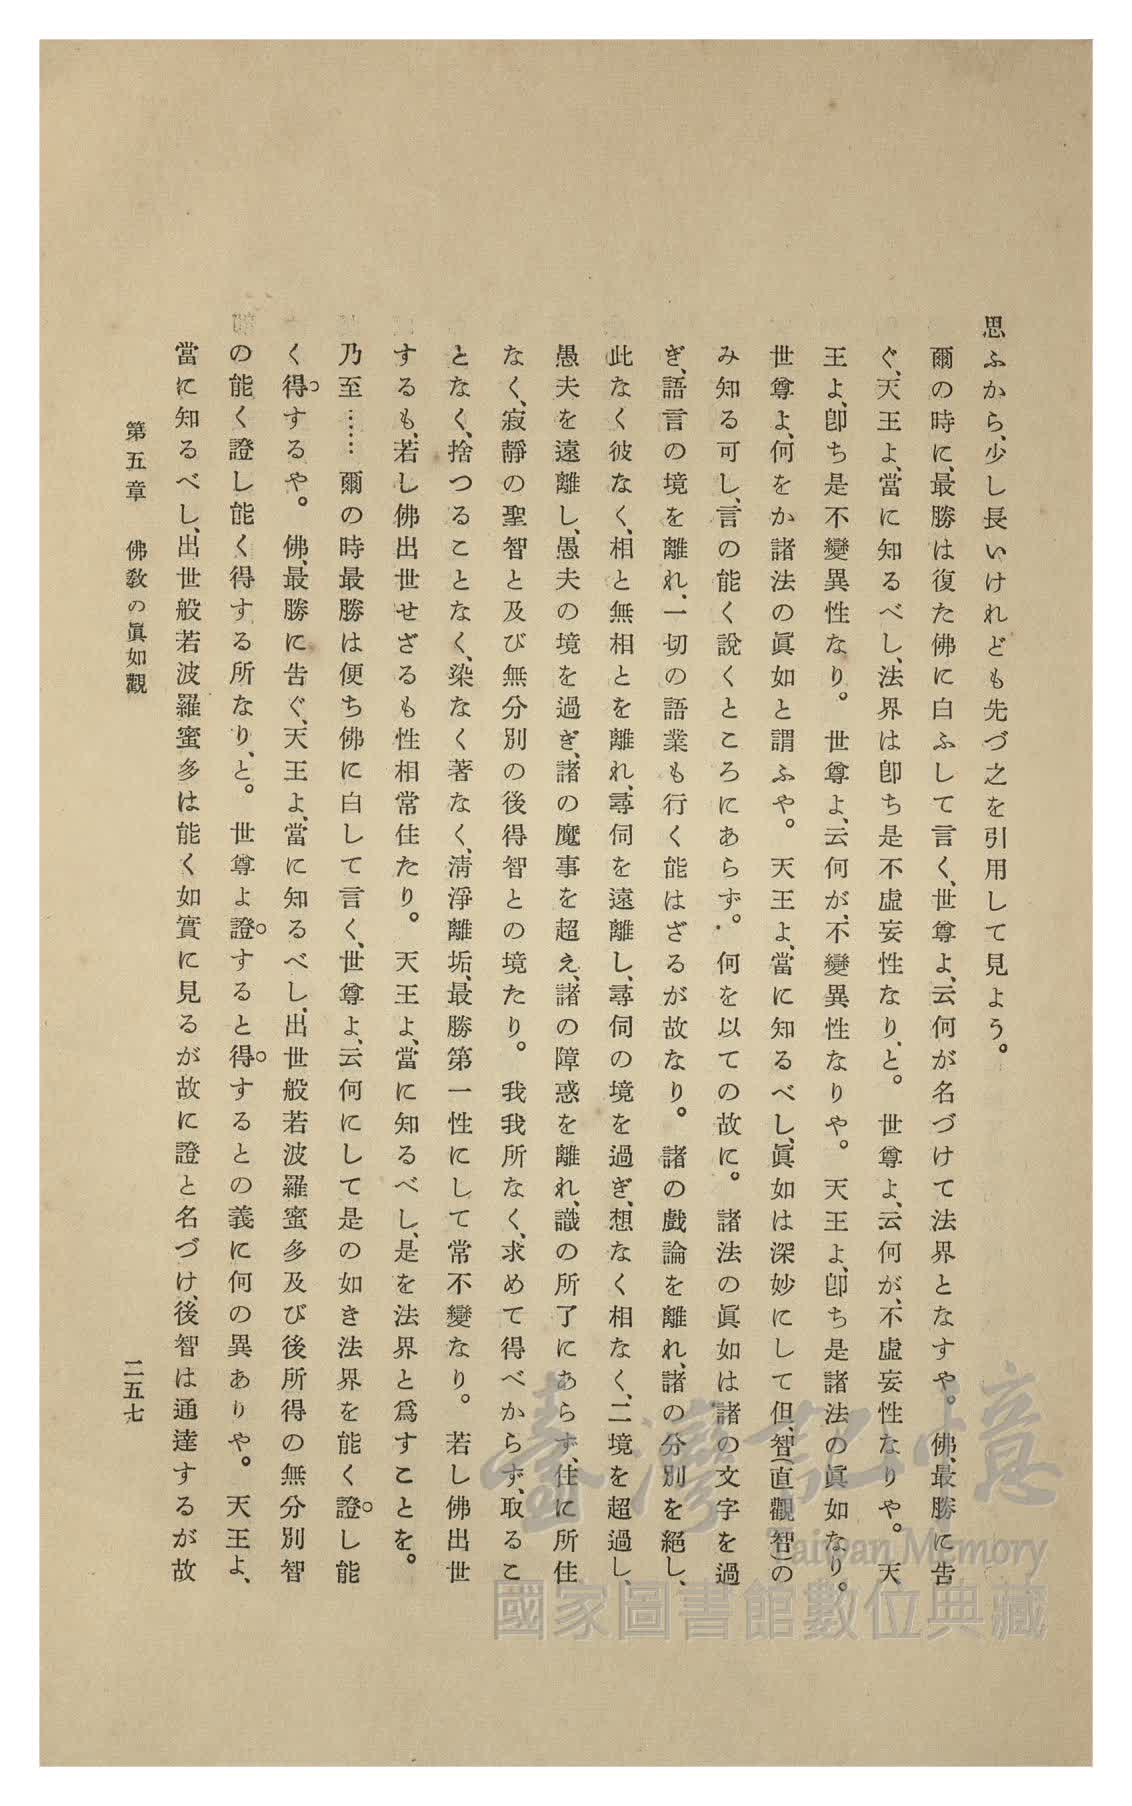 思ふから、少し長いけれども先づ之を引用して見よう。
爾の時に、最勝は復た佛に白ふして言く、世尊よ、云何が名づけて法界となすや。佛、最勝に告
ぐ、天王よ、當に知るべし、法界は卽ち是不虛妄性なり、と。世尊よ、云何が、不虛妄性なりや。天
王よ、卽ち是不變異性なり。世尊よ、云何が、不變異性なりや。天王よ、卽ち是諸法の眞如なり。
世尊よ、何をか諸法の眞如と謂ふや。天王よ、當に知るべし、眞如は深妙にして但、智(直觀智)の
み知る可し、言の能く說くところにあらず。何を以ての故に。諸法の眞如は諸の文字を過
ぎ、語言の境を離れ、一切の語業も行く能はざるが故なり。諸の戲論を離れ、諸の分別を絕し、
此なく彼なく、相と無相とを離れ、尋伺を遠離し、尋伺の境を過ぎ、想なく相なく、二境を超過し、
愚夫を遠離し、愚夫の境を過ぎ、諸の魔事を超え、諸の障惑を離れ、識の所了にあらず、住に所住
なく、寂靜の聖智と及び無分別の後得智との境たり。我我所なく、求めて得べからず、取るこ
となく、捨つることなく、染なく著なく、淸淨離垢、最勝第一性にして常不變なり。若し佛出世
するも、若し佛出世せざるも性相常住たり。天王よ、當に知るべし、是を法界と爲すことを。
乃至……爾の時最勝は便ち佛に白して言く、世尊よ、云何にして是の如き法界を能く證し能
く得するや。佛、最勝に告ぐ、天王よ、當に知るべし、出世般若波羅蜜多及び後所得の無分別智
の能く證し能く得する所なり、と。世尊よ證すると得するとの義に何の異ありや。天王よ、
當に知るべし、出世般若波羅蜜多は能く如實に見るが故に證と名づけ、後智は通達するが故
第五章 佛敎の眞如觀 二五七
臺灣記憶
Taiwan Memory
國家圖書館數位典藏